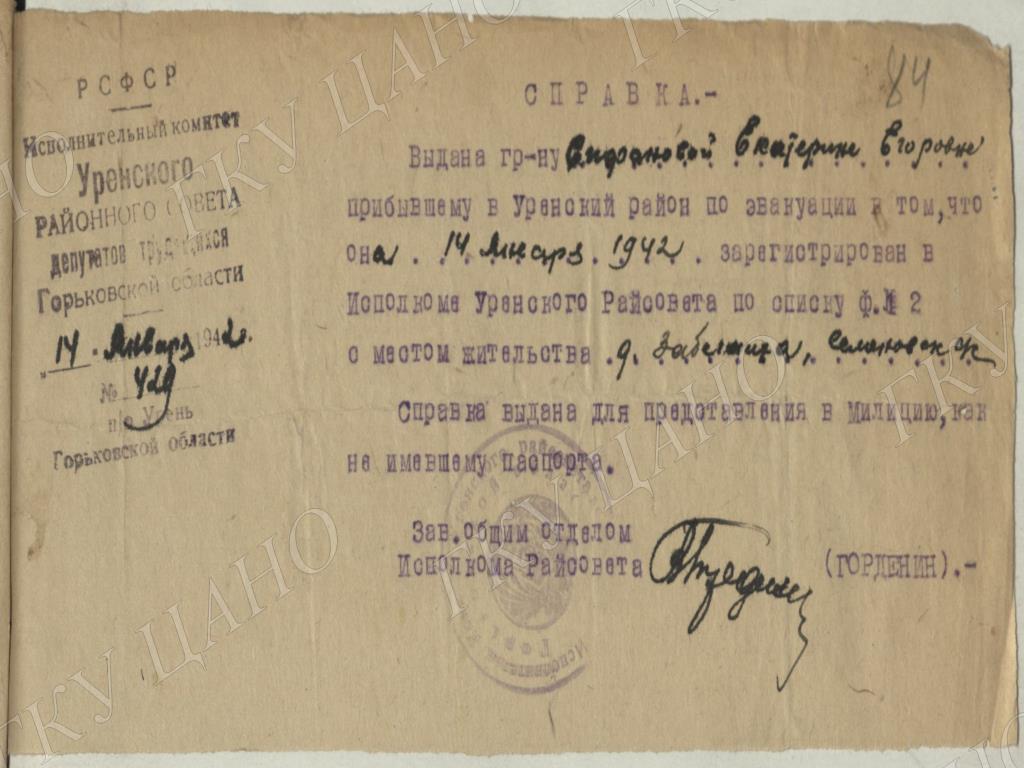 РСФСР
Исполнительный комитет
Уренского
РАЙОННОГО СОВЕТА
депутатов трудящихся
Горьковской области
"14" Января 1942г.
№ 429
п/о Урень
Горьковской области
84
СПРАВКА.-
Выдана гр-ну Екатерине Егоровне
прибывшему в Уренский район по эвакуации в том, что
она 14 Января 1942 . зарегистрирован в
Исполкоме Уренского Райсовета по списку ф.№ 2
с местом жительства д.
Справка выдана для представления в Милицию, как
не имевшему паспорта.
Зав. общим отделом
Исполкома Райсовета (ГОРДЕНИН).-
ГКУ ЦАНО